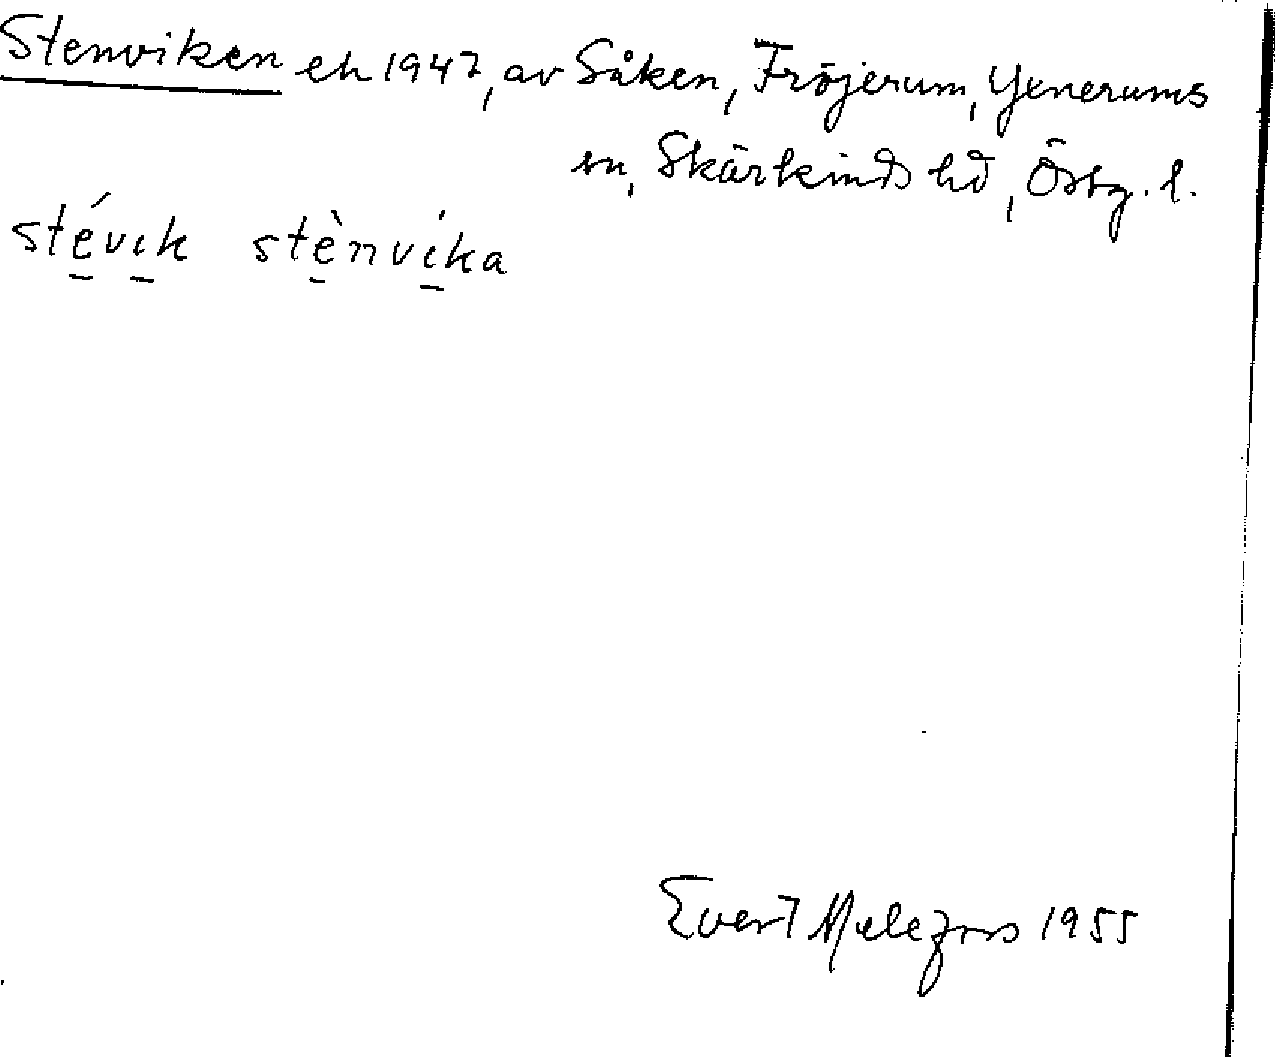 Stenviken eh 1947, av Såken, Fröjerum, Yxnerums
sn, Skärkinds hd, Östg. l.
sté̱vi̱k stè̱nví̱ka
Evert Melefors 1955